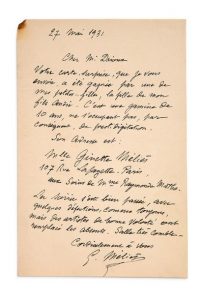 27 Mai 1931
Cher Mr Drioux
Votre carte-surprise, que je vous
envoie a été gagnée par une de
mes petites-filles, la fille de mon
fils André. C'est une gamine de
10 ans, ne s'occupant pas, par
conséquent, de prestidigitation.
Son adresse est :
Melle Ginette Méliès
107 Rue Lafayette. Paris.
aux soins de Mme Raymonde Matho.
La soirée s'est bien passée, avec
quelques défections, comme toujours,
mais des artistes de bonne volonté ont
remplacé les absents. Salle très comble.
Cordialement à vous
G. Méliès